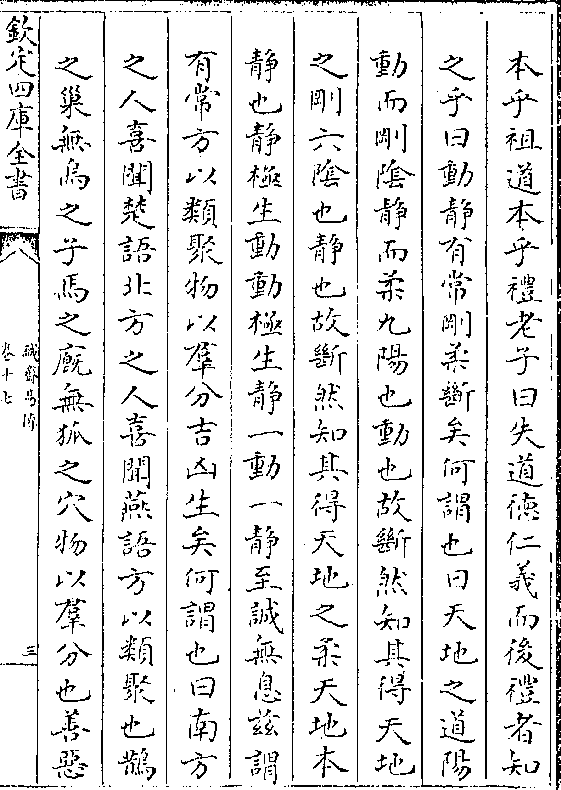 本乎祖道本乎禮老子曰失道德仁義而後禮者知
之乎曰動靜有常剛柔斷矣何謂也曰天地之道陽
動而剛陰靜而柔九陽也動也故斷然知其得天地
之剛六陰也靜也故斷然知其得天地之柔天地本
靜也靜極生動動極生靜一動一靜至誠無息茲謂
有常方以類聚物以羣分吉凶生矣何謂也曰南方
之人喜聞楚語北方之人喜聞燕語方以類聚也鵲
之巢無烏之子馬之廐無狐之穴物以羣分也善惡
欽定四庫全書
誠齋易傳
卷十七
三